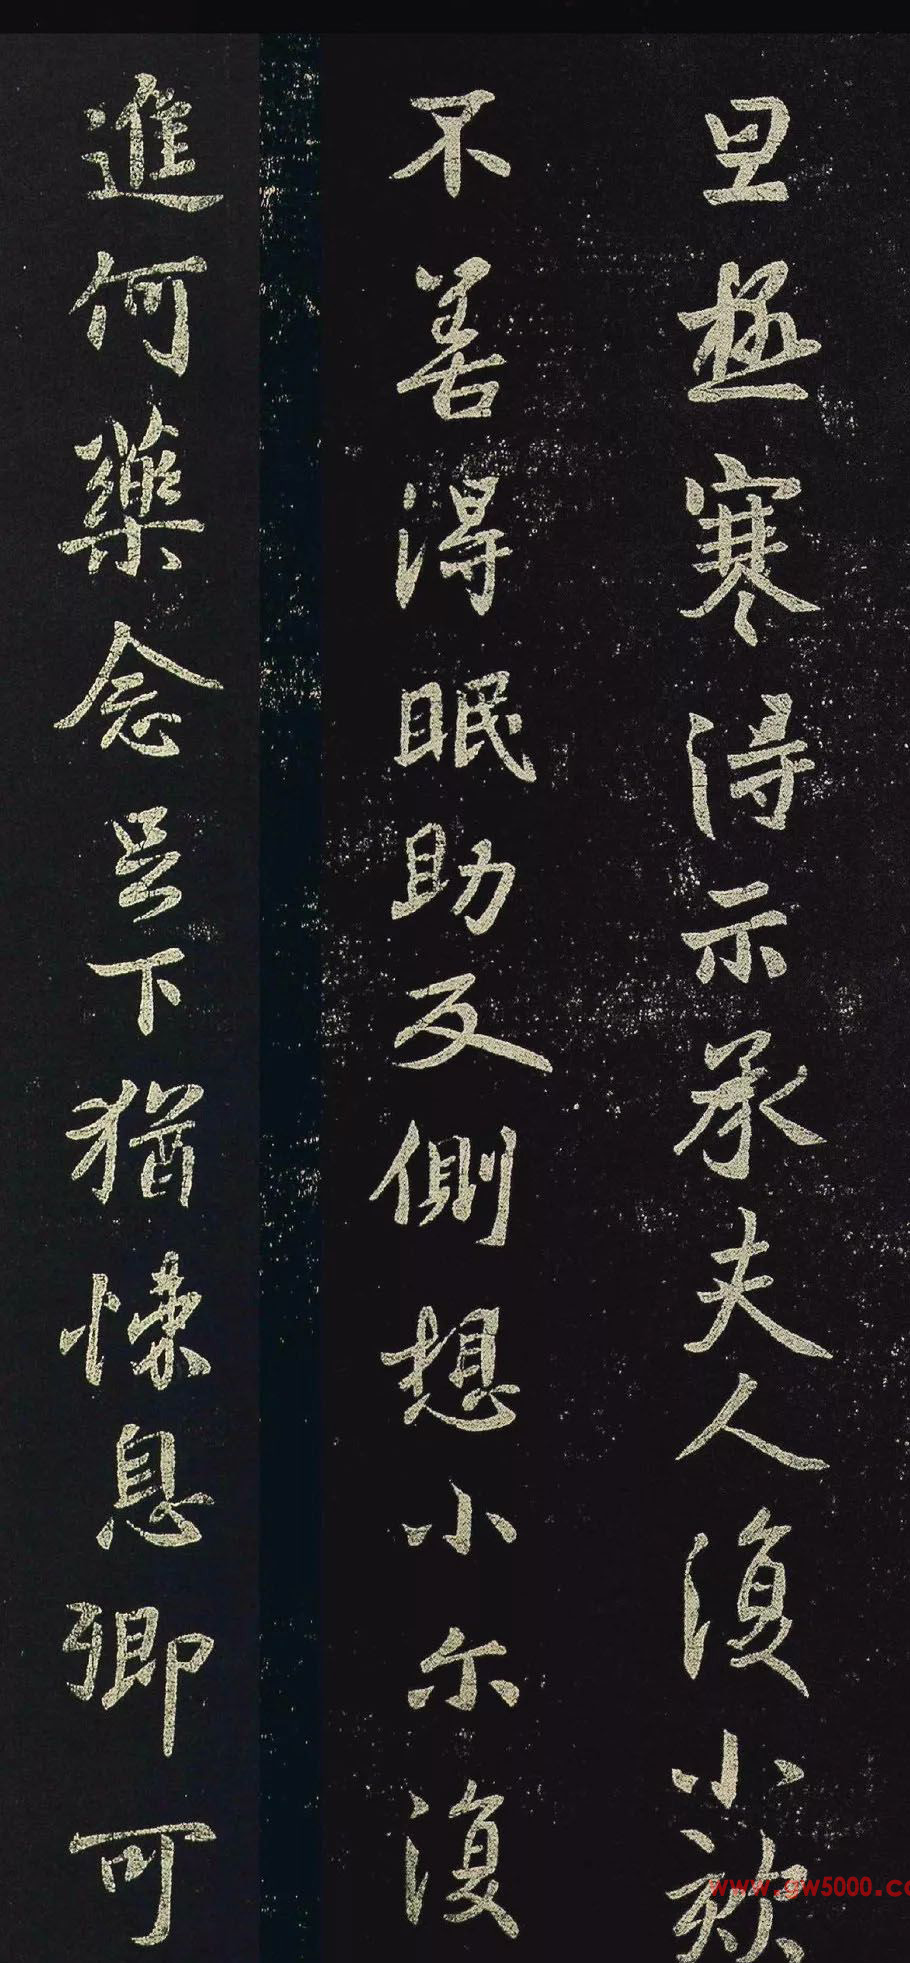 旦極寒得示承夫人復小欬
不善得眠助反側想小尔復
進何藥念足下猶悚息卿可
www.gw5000.co